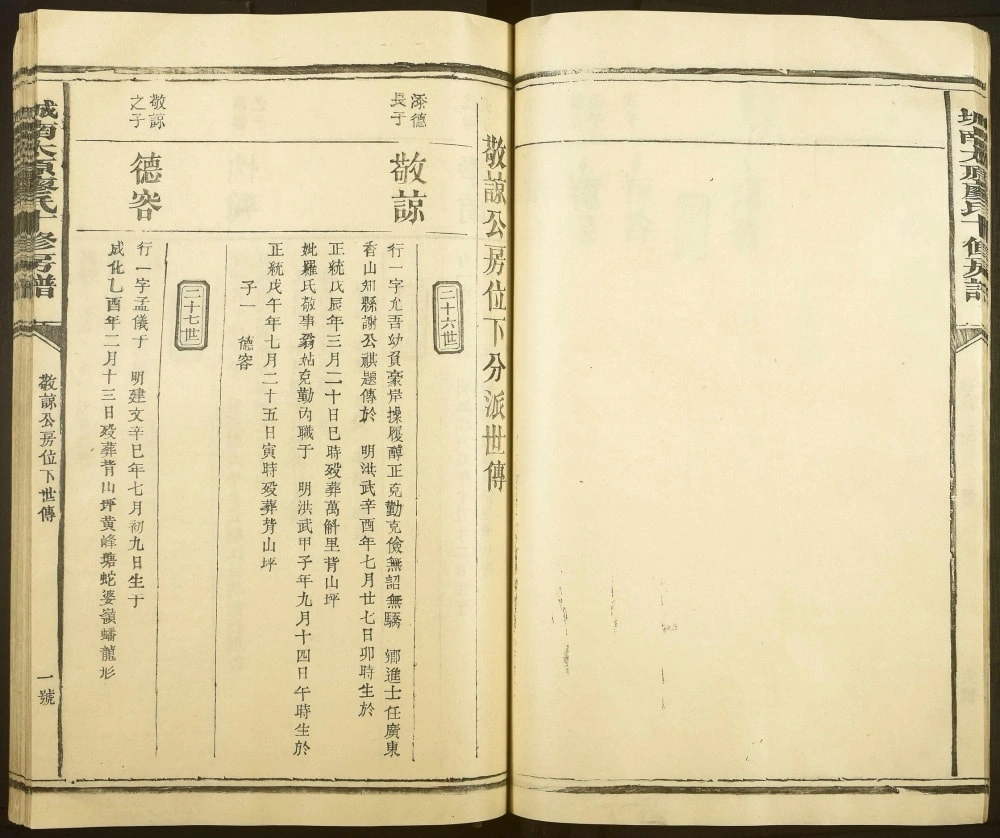 城南太原廖氏十修房譜
敬諒公房位下分派世傳
二十六世
添德
長子
敬諒
行一字允吾幼負豪岸操履醇正克勤克儉無諂無驕 鄉進士任廣東
香山知縣謝公祺題傳於 明洪武辛酉年七月廿七日卯時生於
正統戊辰年三月二十日巳時歿葬萬斛里背山坪
妣羅氏敬事翁姑克勤內職于 明洪武甲子年九月十四日午時生於
正統戊午年七月二十五日寅時歿葬背山坪
子一 德容
二十七世
敬諒
之子
德容
行一字孟儀于 明建文辛巳年七月初九日生于
成化乙酉年二月十三日歿葬背山坪黃峰塘蛇婆嶺蟠龍形
城南太原廖氏十修房譜
敬諒公房位下世傳
一號